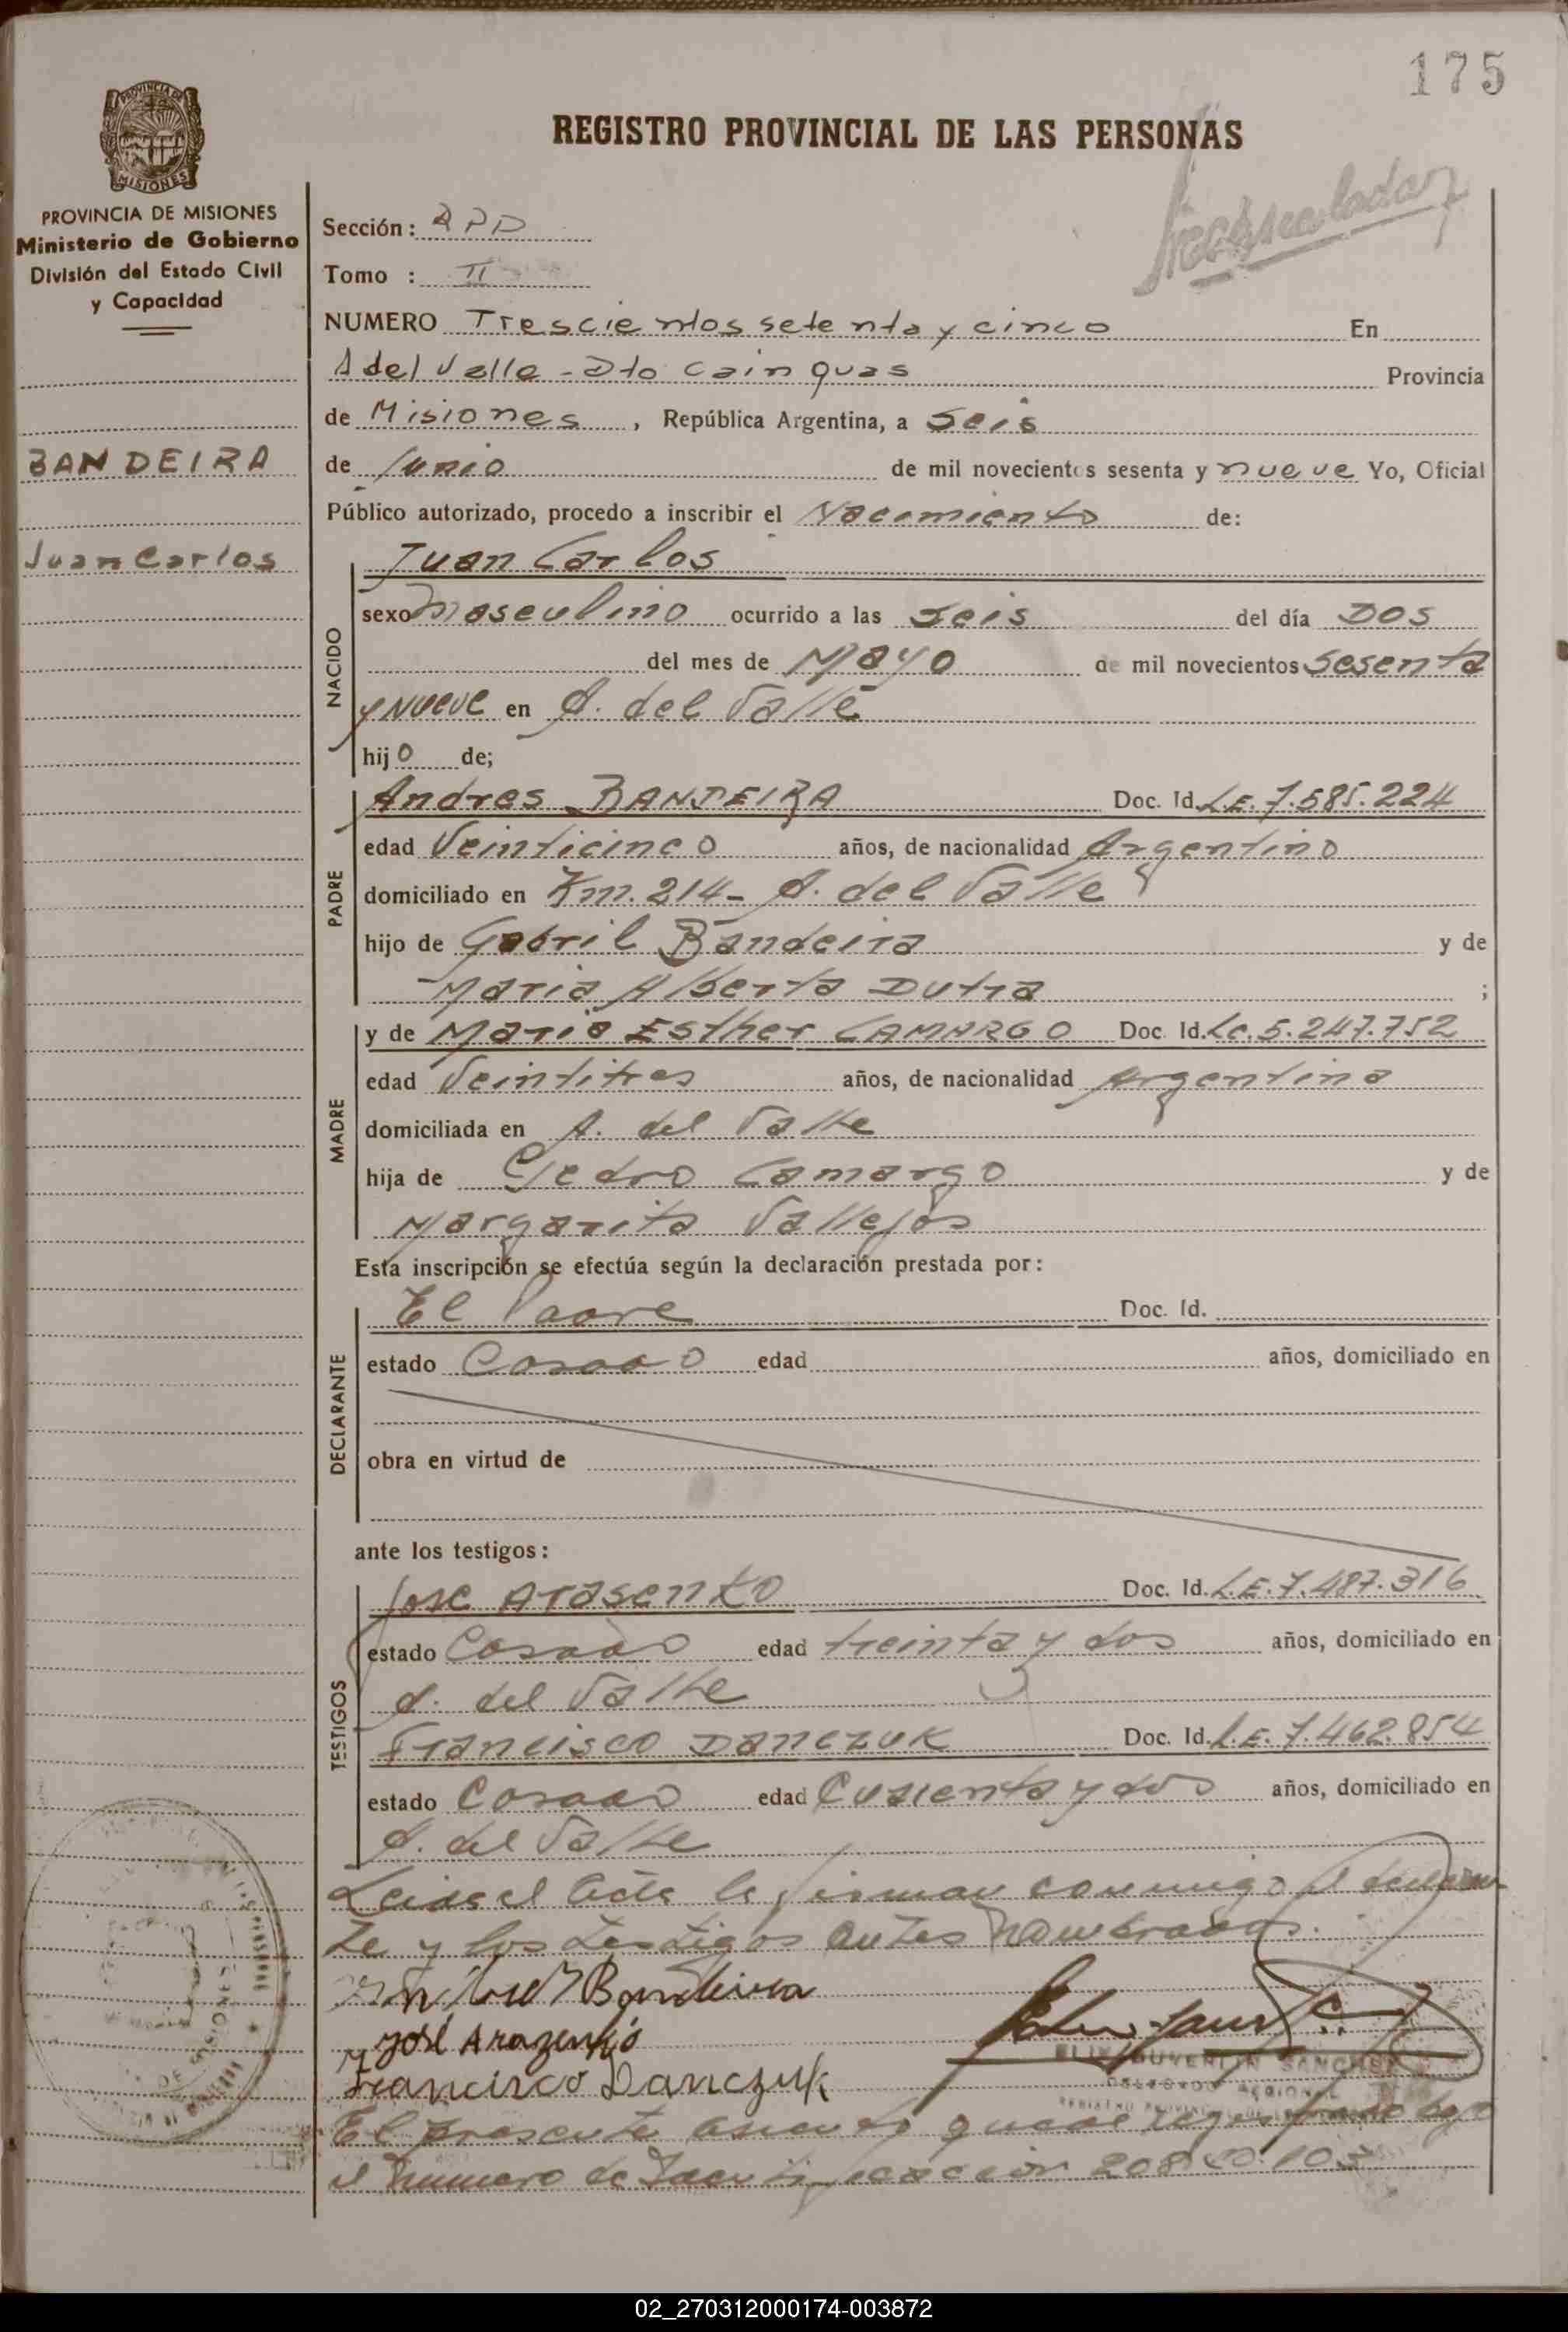 175
REGISTRO PROVINCIAL DE LAS PERSONAS
PROVINCIA DE MISIONES
Ministerio de Gobierno
División del Estado Civil
y Capacidad
BANDEIRA
Juan Carlos
Sección:
Tomo : II
NUMERO Trescientos setenta y cinco En
A del Valle - Dto Cainguas Provincia
de Misiones, República Argentina, a Seis
de Junio de mil novecientos sesenta y nueve Yo, Oficial
Público autorizado, procedo a inscribir el Nacimiento de:
NACIDO
Juan Carlos
sexo Masculino ocurrido a las seis del día DOS
del mes de Mayo de mil novecientos sesenta
y nueve en A. del Valle
hijo de;
PADRE
Andres BANDEIRA Doc. Id. L.E. 7.585.224
edad Veinticinco años, de nacionalidad Argentino
domiciliado en Km. 214- A. del Valle
hijo de Gabril Bandeira y de
Maria Alberta Dutra ;
MADRE
y de Maria Esther CAMARGO Doc. Id. Lc. 5.247.752
edad Veintitres años, de nacionalidad Argentina
domiciliada en A. del Valle
hija de Pedro Camargo y de
Margarita Vallejos
Esta inscripción se efectúa según la declaración prestada por:
DECLARANTE
El Padre Doc. Id.
estado Casado edad años, domiciliado en
obra en virtud de
ante los testigos:
TESTIGOS
Jose Arasenko Doc. Id. L.E. 7.487.316
estado Casado edad treinta y dos años, domiciliado en
A. del Valle
Francisco DANCZUK Doc. Id. L.E. 7.462.854
estado Casado edad Cuarenta y dos años, domiciliado en
A. del Valle
Leida el Acta la firman conmigo el declaran
te y los testigos antes nombrados.
Bandeira
José Arazenko
Francisco Danczuk
SANCHEZ
El presente asiento queda registrado bajo
el numero de Identificacion
02_270312000174-003872